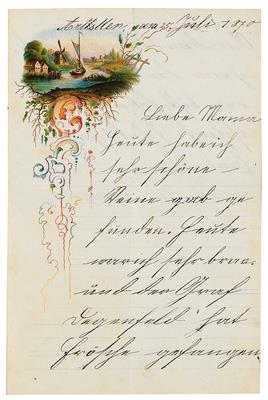 den 25. Juli 1870
Liebe Mama
heute habe ich
sehr schöne
Steine
ge
funden. Heute
war ich sehr brav
und der Graf
Degenfeld hat
Frösche gefangen.